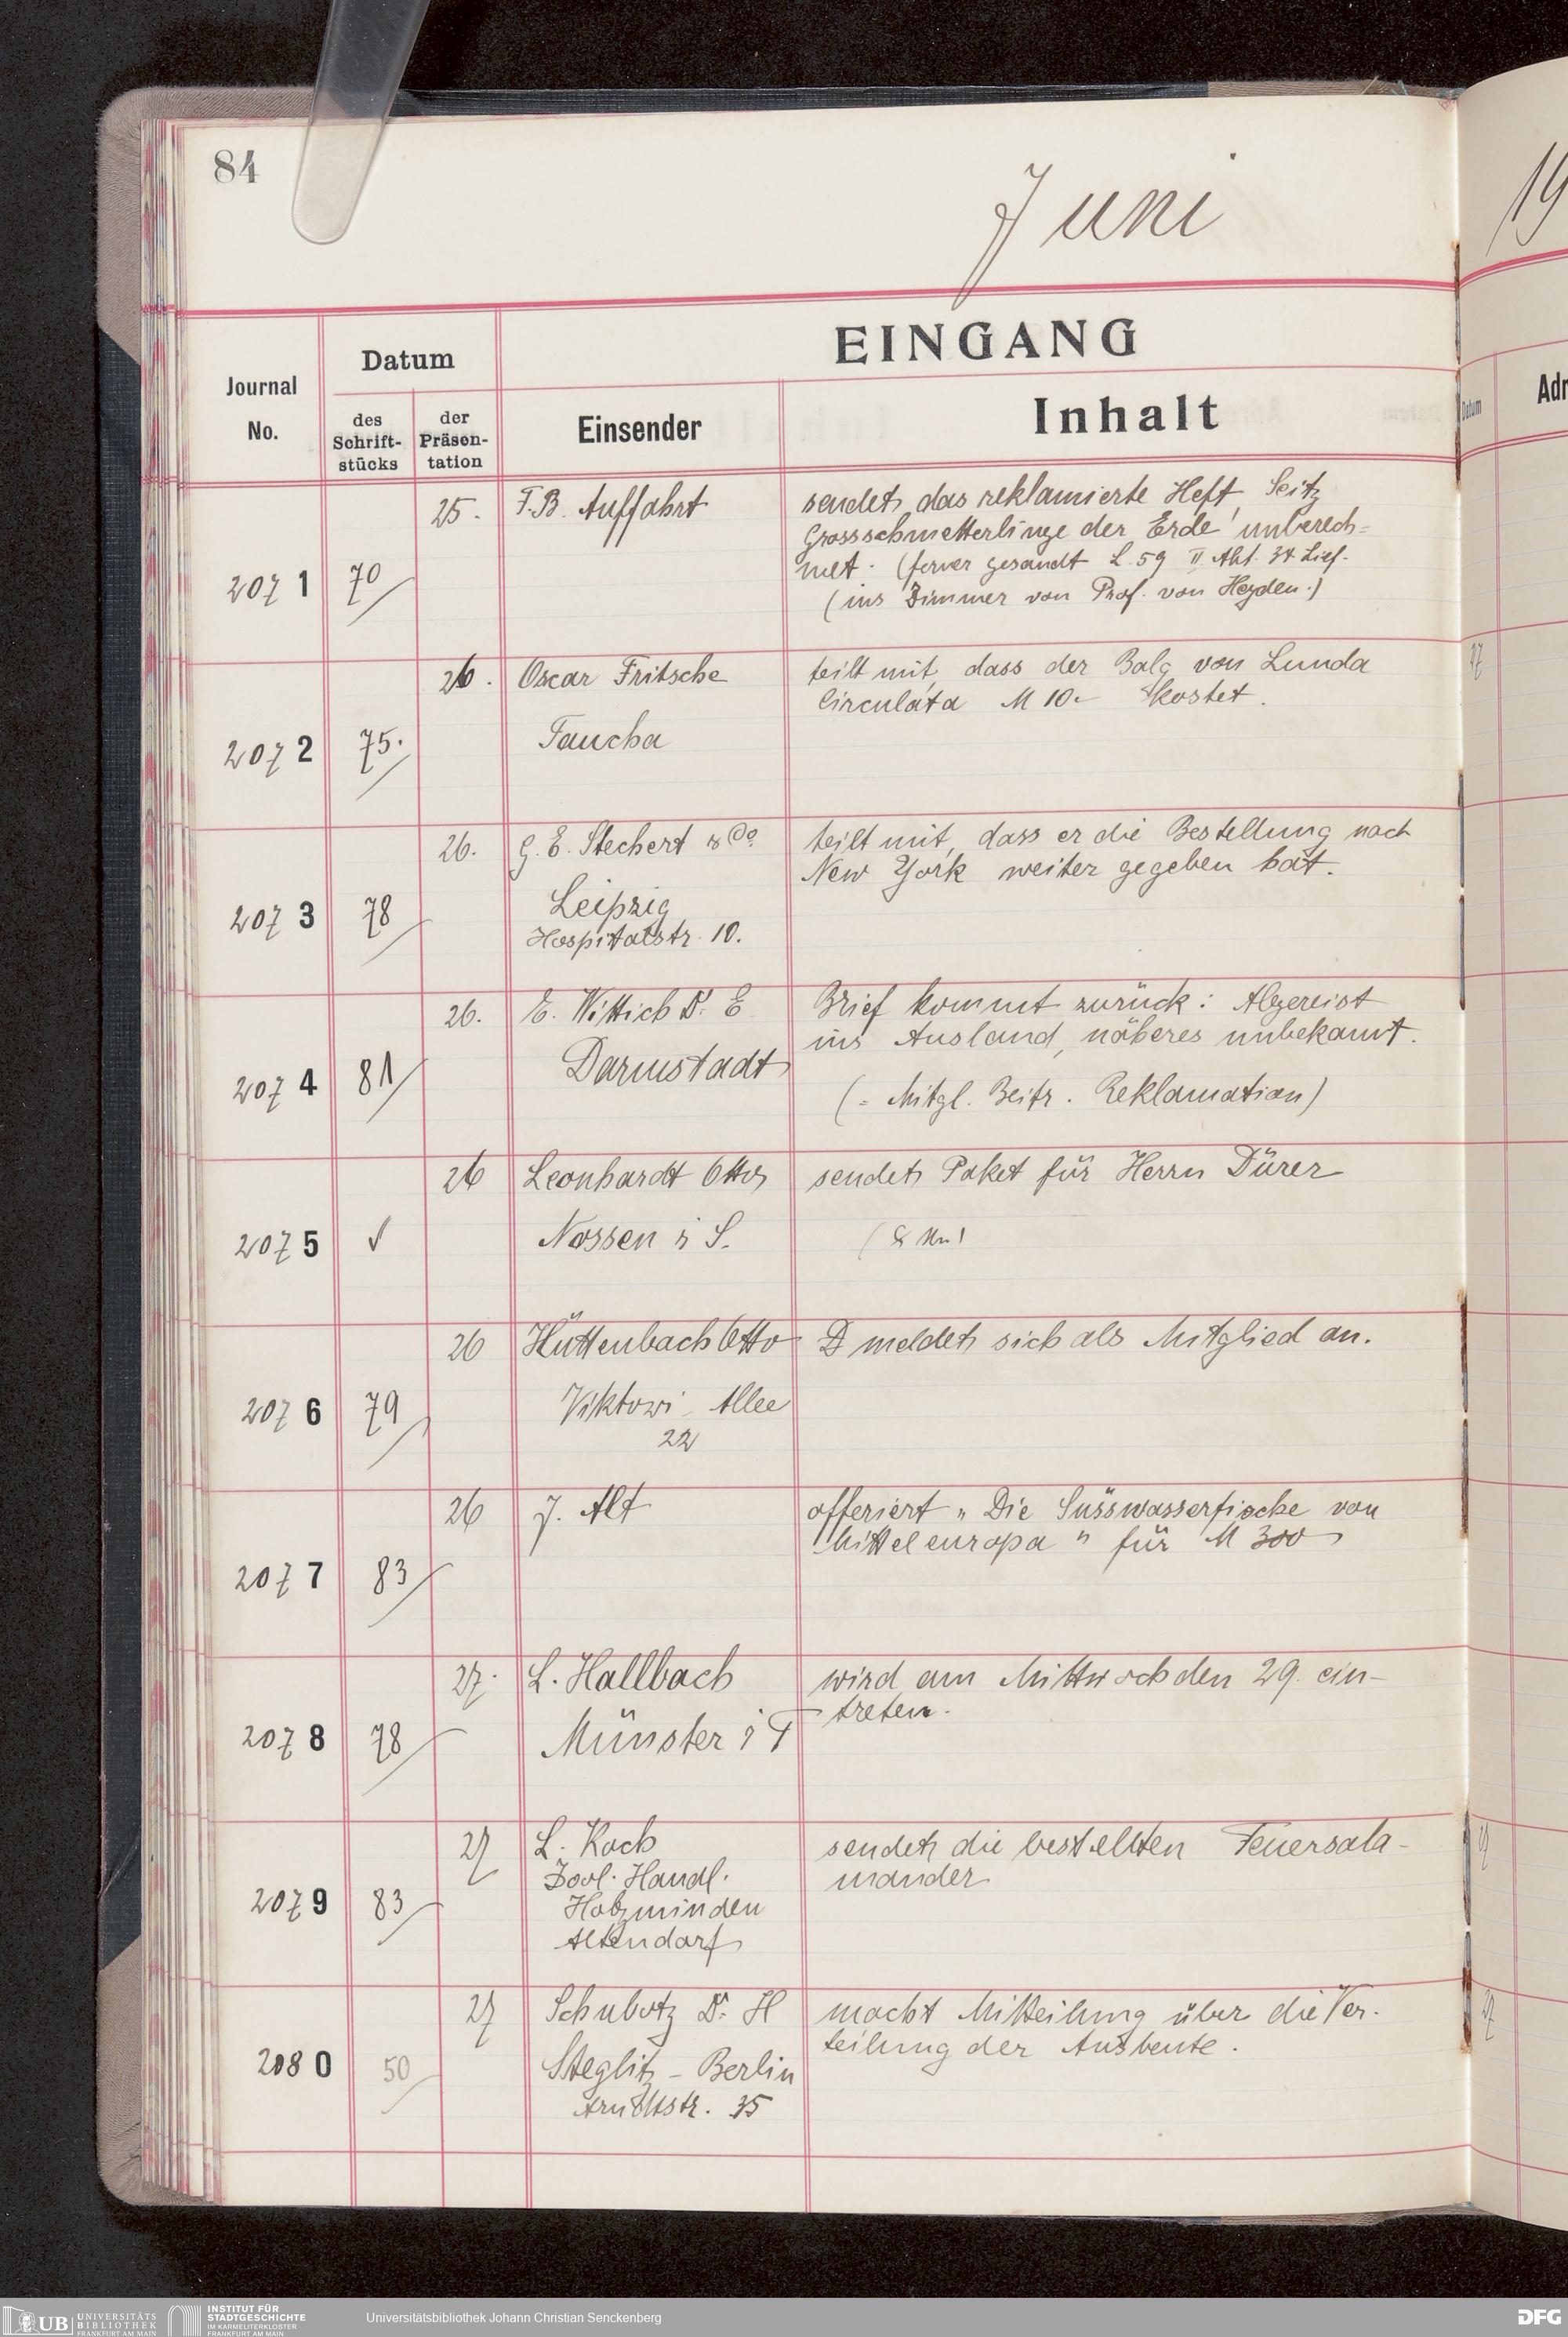 84
Juni
19
EINGANG
Datum
Journal
No.
des
Schrift-
stücks
der
Präsen-
tation
Einsender
Inhalt
Datum
Adr
2071
70
25.
F.B. Auffahrt
sendet das reklamierte Heft Seitz
Grossschmetterlinge der Erde unberech=
net. (ferner gesandt L. 59 II Abt. 34 Lief.
(ins Zimmer von Prof. von Heyden.)
2072
75.
26.
Oscar Fritsche
Taucha
teilt mit, dass der Balg von Lunda
Circulata M 10.- kostet.
27
2073
78
26.
G. E. Stechert & Co
Leipzig
Hospitalstr. 10.
teilt mit, dass er die Bestellung nach
New York weiter gegeben hat.
2074
81
26.
E. Wittich Dr. E
Darmstadt
Brief kommt zurück: Abgereist
ins Ausland, näheres unbekannt.
(= Mitgl. Beitr. Reklamation)
2075
√
26
Leonhardt Otto
Nossen i S.
sendet Paket für Herrn Dürer
2076
79
26
Hüttenbach Otto
Viktori- Allee
22
D meldet sich als Mitglied an.
2077
83
26
J. Alt
offeriert „ Die Süsswasserfische von
Mitteleuropa " für M 300
2078
78
27.
L. Hallbach
Münster i T
wird am Mittwoch den 29. ein-
treten.
2079
83
27
L. Koch
Zool. Handl.
Holzminden
Altendorf
sendet die bestellten Feuersala-
mander
2080
50
27
Schubotz Dr. H
Steglitz - Berlin
Arndtstr. 35
macht Mitteilung über die Ver-
teilung der Ausbeute.
27
UB UNIVERSITÄTS
BIBLIOTHEK
FRANKFURT AM MAIN
INSTITUT FÜR
STADTGESCHICHTE
IM KARMELITERKLOSTER
FRANKFURT AM MAIN
Universitätsbibliothek Johann Christian Senckenberg
DFG